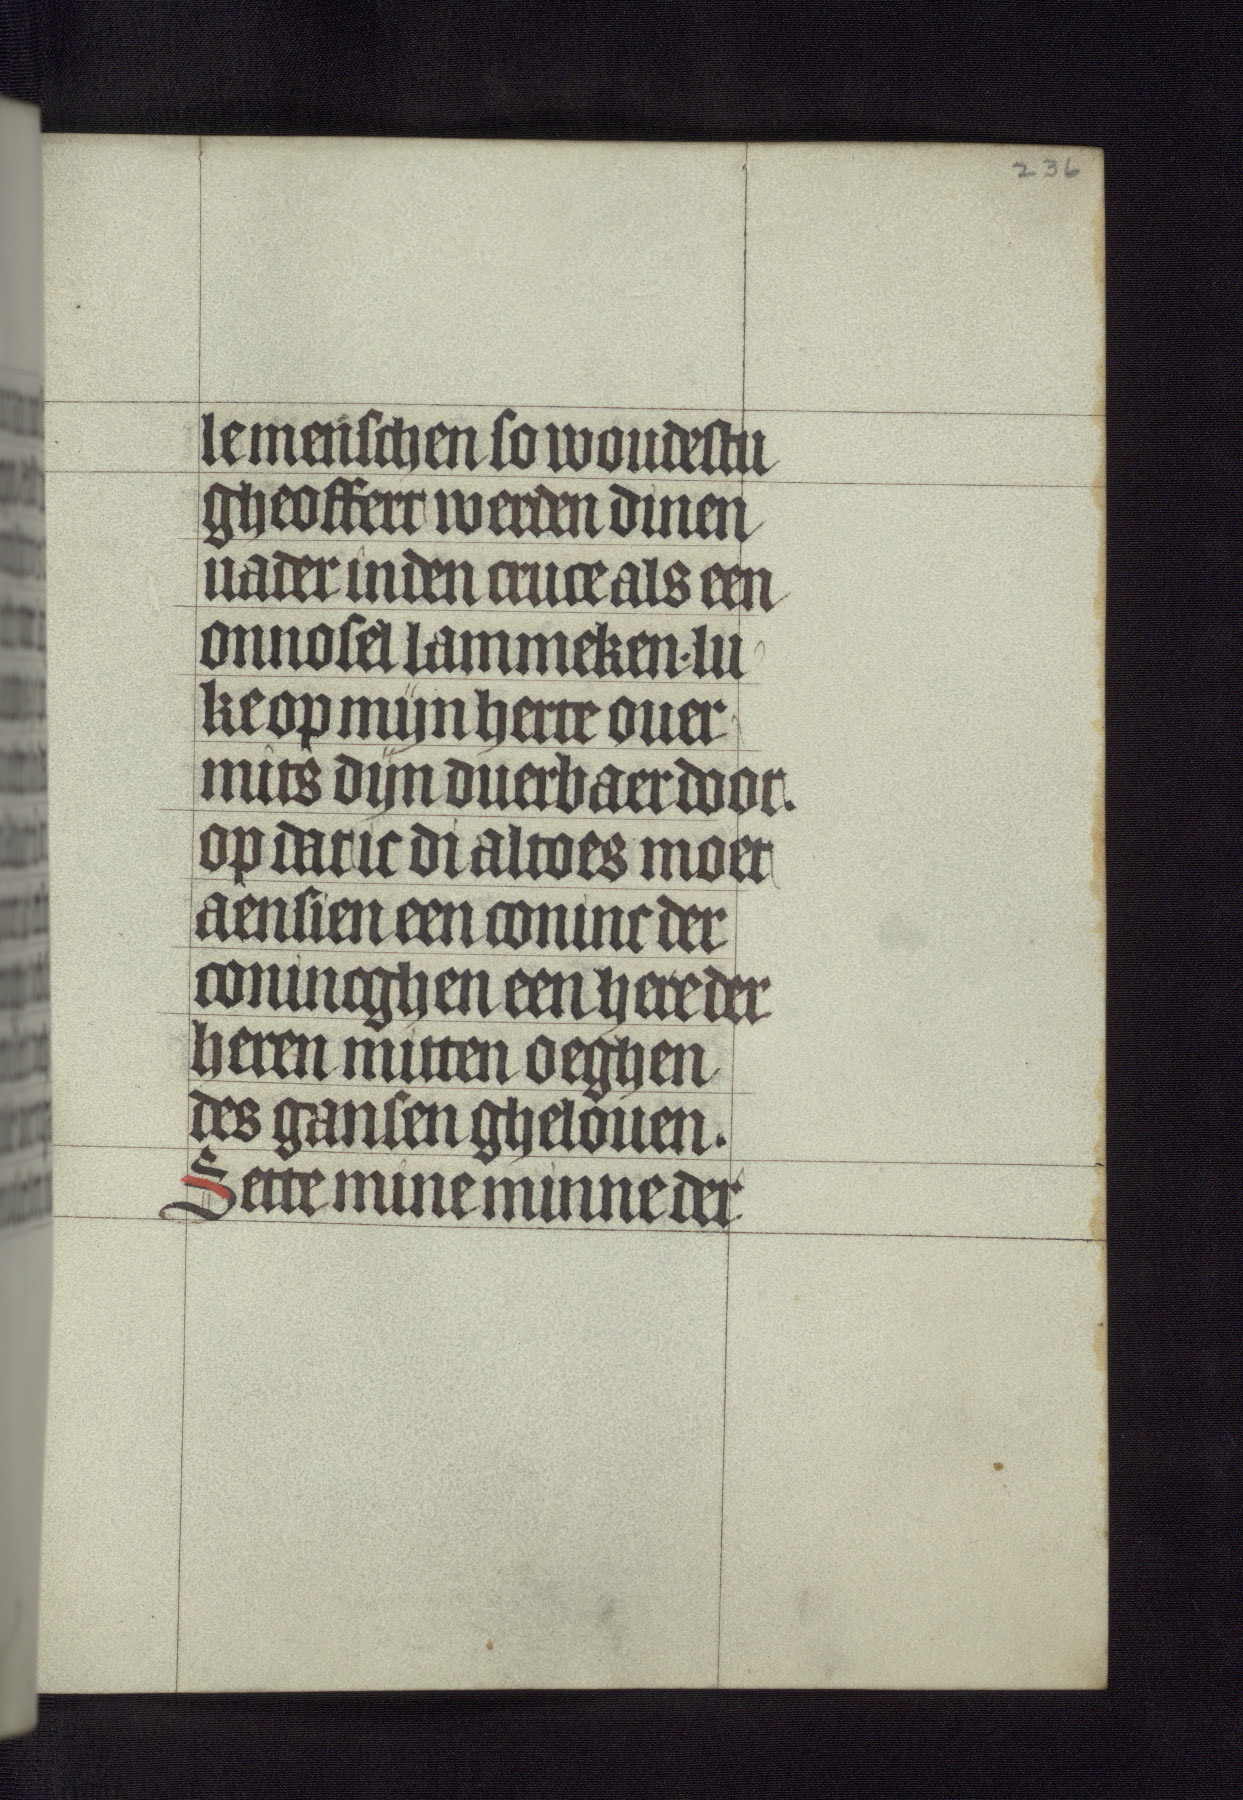 236
le menschen so woudestu
gheoffert werden dinen
uader in den cruce als een
onnosel lammeken. lu
ke op mijn herte ouer
mits dijn duerbaer doot.
op dat ic di altoes moet
aensien een coninc der
conincghen een here der
heren mitten oeghen
des gansen ghelouen.
Sette mine minne der